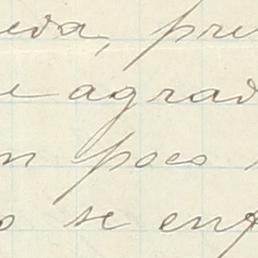 eda, pre
e agrad
n poco
o se enf